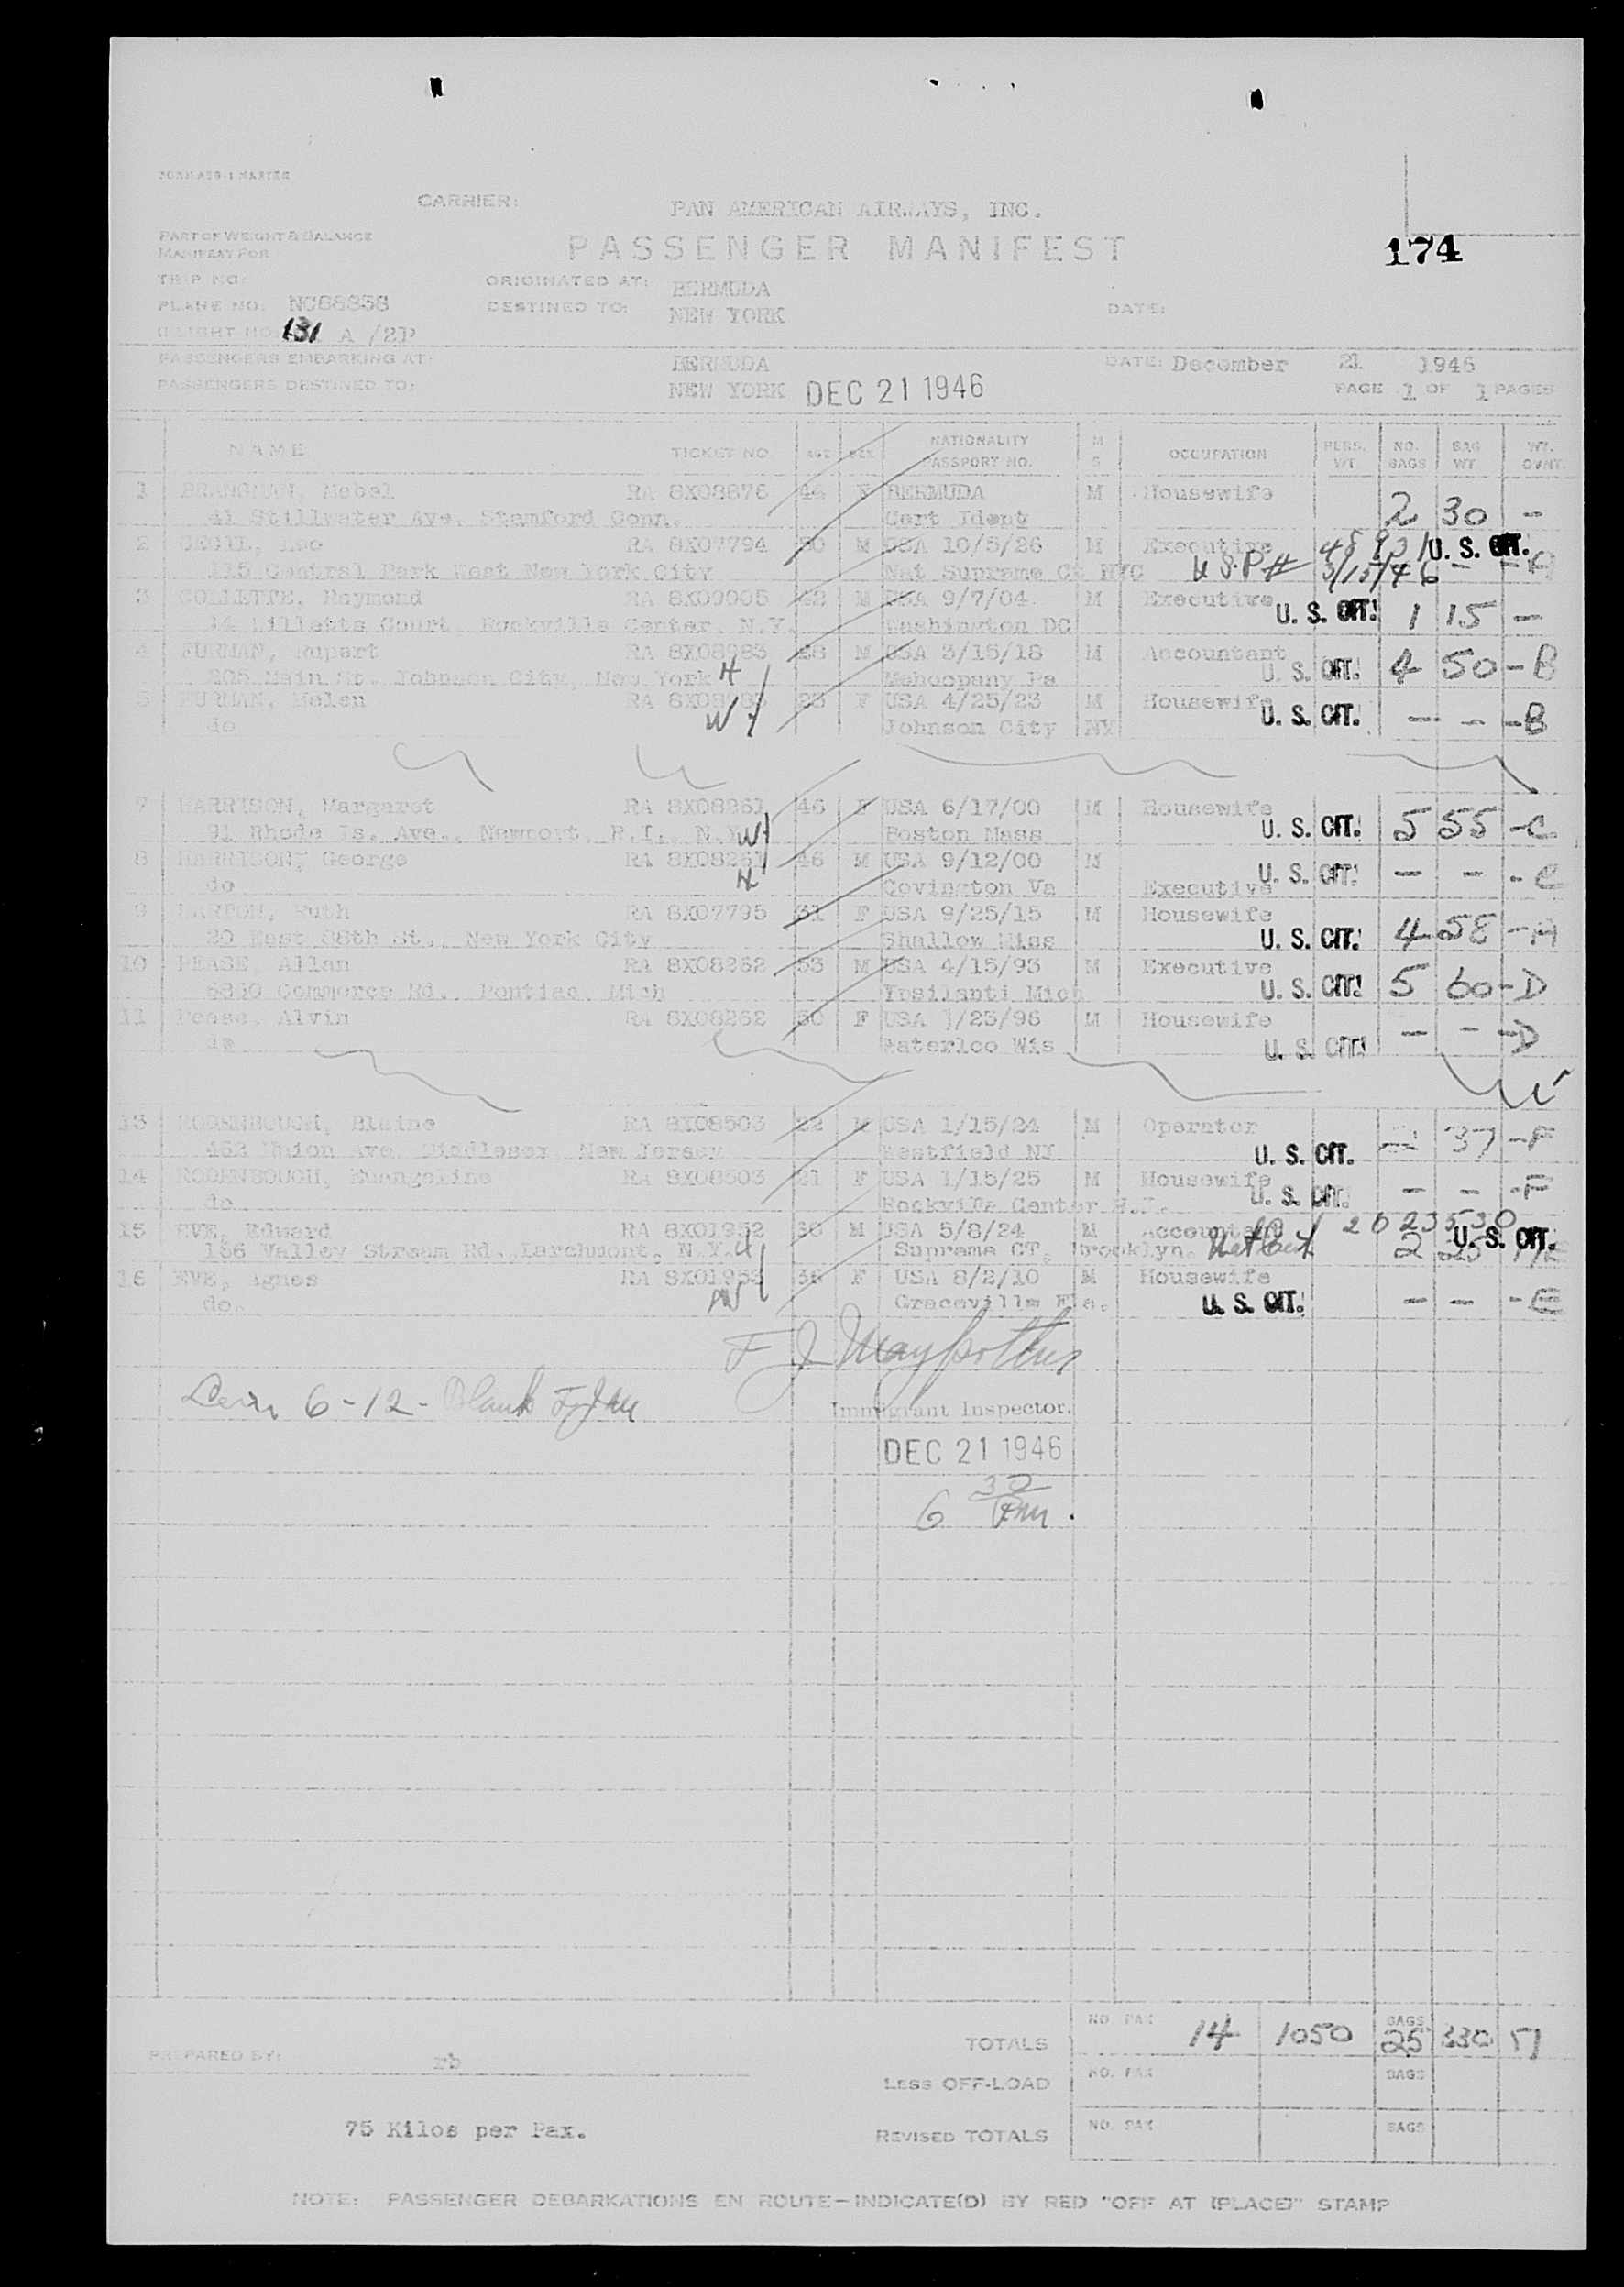 FORM ATB-1 MASTER
CARRIER: PAN AMERICAN AIRWAYS, INC.
PART OF WEIGHT & BALANCE
MANIFEST FOR
PASSENGER MANIFEST
174
TRIP NO.
ORIGINATED AT: BERMUDA
PLANE NO: NC88858
DESTINED TO: NEW YORK
DATE:
FLIGHT NO: 131 A /2P
PASSENGERS EMBARKING AT: BERMUDA
DATE: December 21 1946
PASSENGERS DESTINED TO: NEW YORK DEC 21 1946
PAGE 1 OF 1 PAGES
NAME TICKET NO. AGE SEX NATIONALITY PASSPORT NO. M S OCCUPATION PERS. WT. NO. BAGS BAG WT. WT. OVNT.
1 Mabel RA 8X08876 44 F BERMUDA M Housewife 2 30 -
41 Stillwater Ave. Stamford Conn. Cert Ident
2 CECIL, Leo RA 8X07794 50 M USA 10/5/26 M Executive U. S. CIT.
115 Central Park West New York City Nat Supreme Ct NYC U.S.P # 3/15/46 - - A
3 COLLETTE, Raymond RA 8X09005 42 M USA 9/7/04 M Executive
Court Rockville Center, N.Y. Washington DC U. S. CIT. 1 15 -
4 FURMAN, Rupert RA 8X08983 28 M USA 3/15/18 M Accountant
205 Main St. Johnson City, New York H Mehoopany Pa U. S. CIT. 4 50 - B
5 FURMAN, Helen RA 8X08983 23 F USA 4/25/23 M Housewife
do W Johnson City NY U. S. CIT. - - - B
7 HARRISON, Margaret RA 8X08261 46 F USA 6/17/00 M Housewife
91 Rhode Is. Ave., Newport, R.I., N.Y. W Boston Mass U. S. CIT. 5 55 - C
8 HARRISON, George RA 8X08261 46 M USA 9/12/00 M
do H Covington Va Executive U. S. CIT. - - - C
9 Ruth RA 8X07795 31 F USA 9/25/15 M Housewife
20 East 88th St., New York City U. S. CIT. 4 58 - A
10 PEASE, Allan RA 8X08262 53 M USA 4/15/93 M Executive
Commerce Rd., Pontiac, Mich Ypsilanti Mich U. S. CIT. 5 60 - D
11 Pease, Alvin RA 8X08262 50 F USA 1/23/96 M Housewife
do Waterloo Wis U. S. CIT. - - - D
13 RODENBOUGH, Blaine RA 8X08503 22 M USA 1/15/24 M Operator
Union Ave. Middlesex, New Jersey Westfield NJ U. S. CIT. 37 - F
14 RODENBOUGH, Evangeline RA 8X08503 21 F USA 1/15/25 M Housewife
do Center U. S. CIT. - - - F
15 EVE, Edward RA 8X01952 36 M USA 5/8/24 M Accountant U. S. CIT.
156 Valley Stream Rd. Larchmont, N.Y. H Supreme CT, Brooklyn. 2 25
16 EVE, Agnes RA 8X01953 36 F USA 8/2/10 M Housewife
do. W Graceville Fla. U. S. CIT. - - - E
6-12- Blank
Immigrant Inspector.
DEC 21 1946
6 30 PM.
TOTALS NO. PAX 14 1050 BAGS 25 330 51
PREPARED BY: rb
LESS OFF-LOAD NO. PAX BAGS
75 Kilos per Pax.
REVISED TOTALS NO. PAX BAGS
NOTE: PASSENGER DEBARKATIONS EN ROUTE—INDICATE(D) BY RED "OFF AT (PLACE)" STAMP